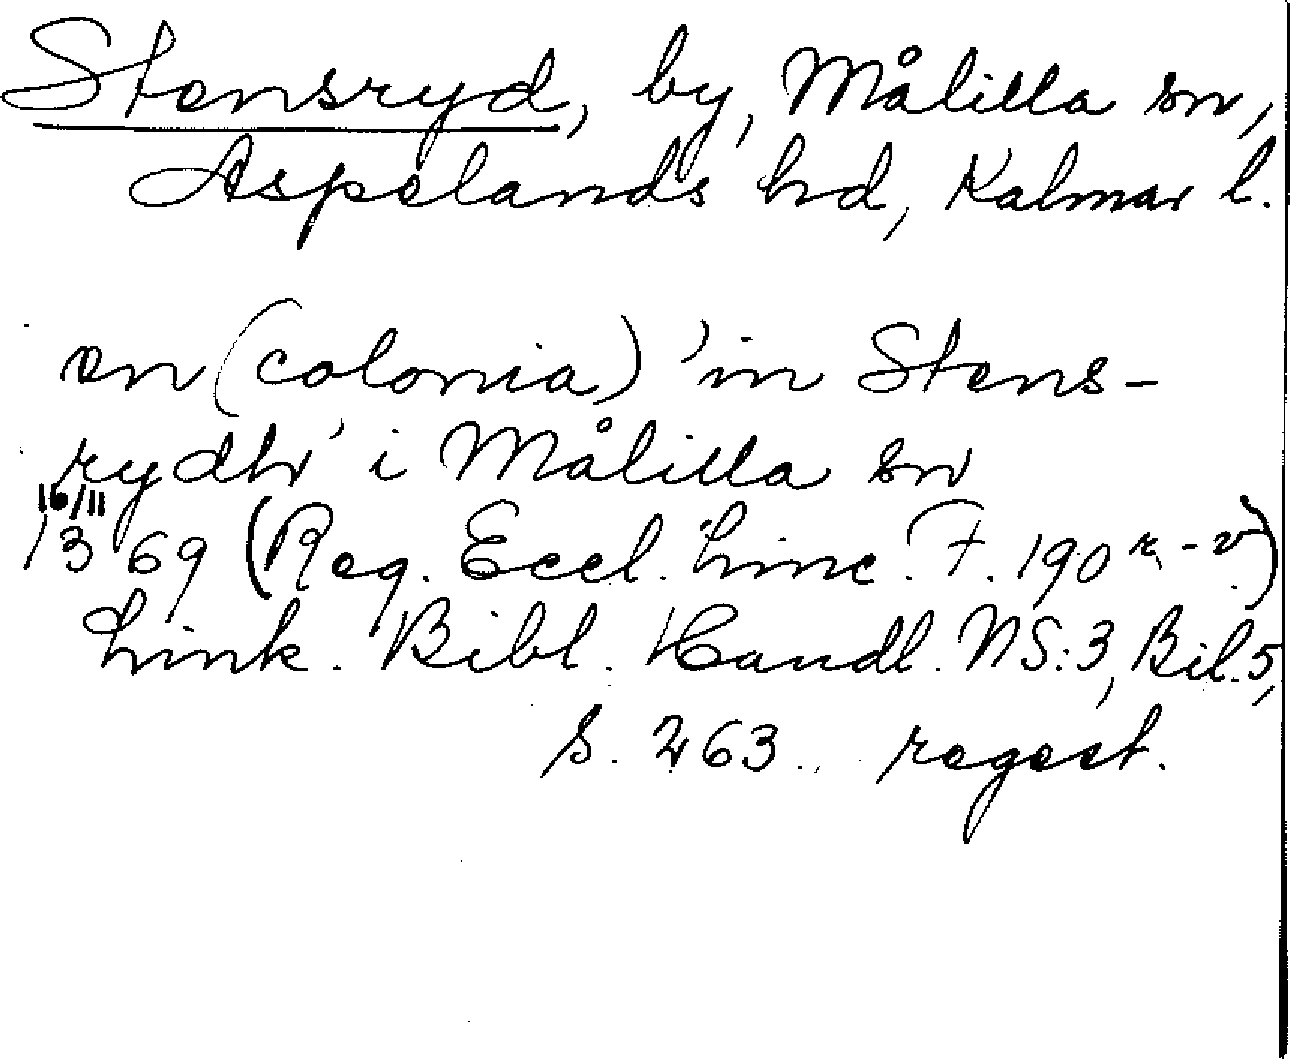 Stensryd, by, Målilla sn,
Aspelands hd, Kalmar l.
en (colonia) 'in Stens-
rydh' i Målilla sn
16/11
1369 (Reg. Eccl. Linc. F. 190 r-v)
Link. Bibl. Handl. NS:3, Bil. 5,
S. 263. regest.